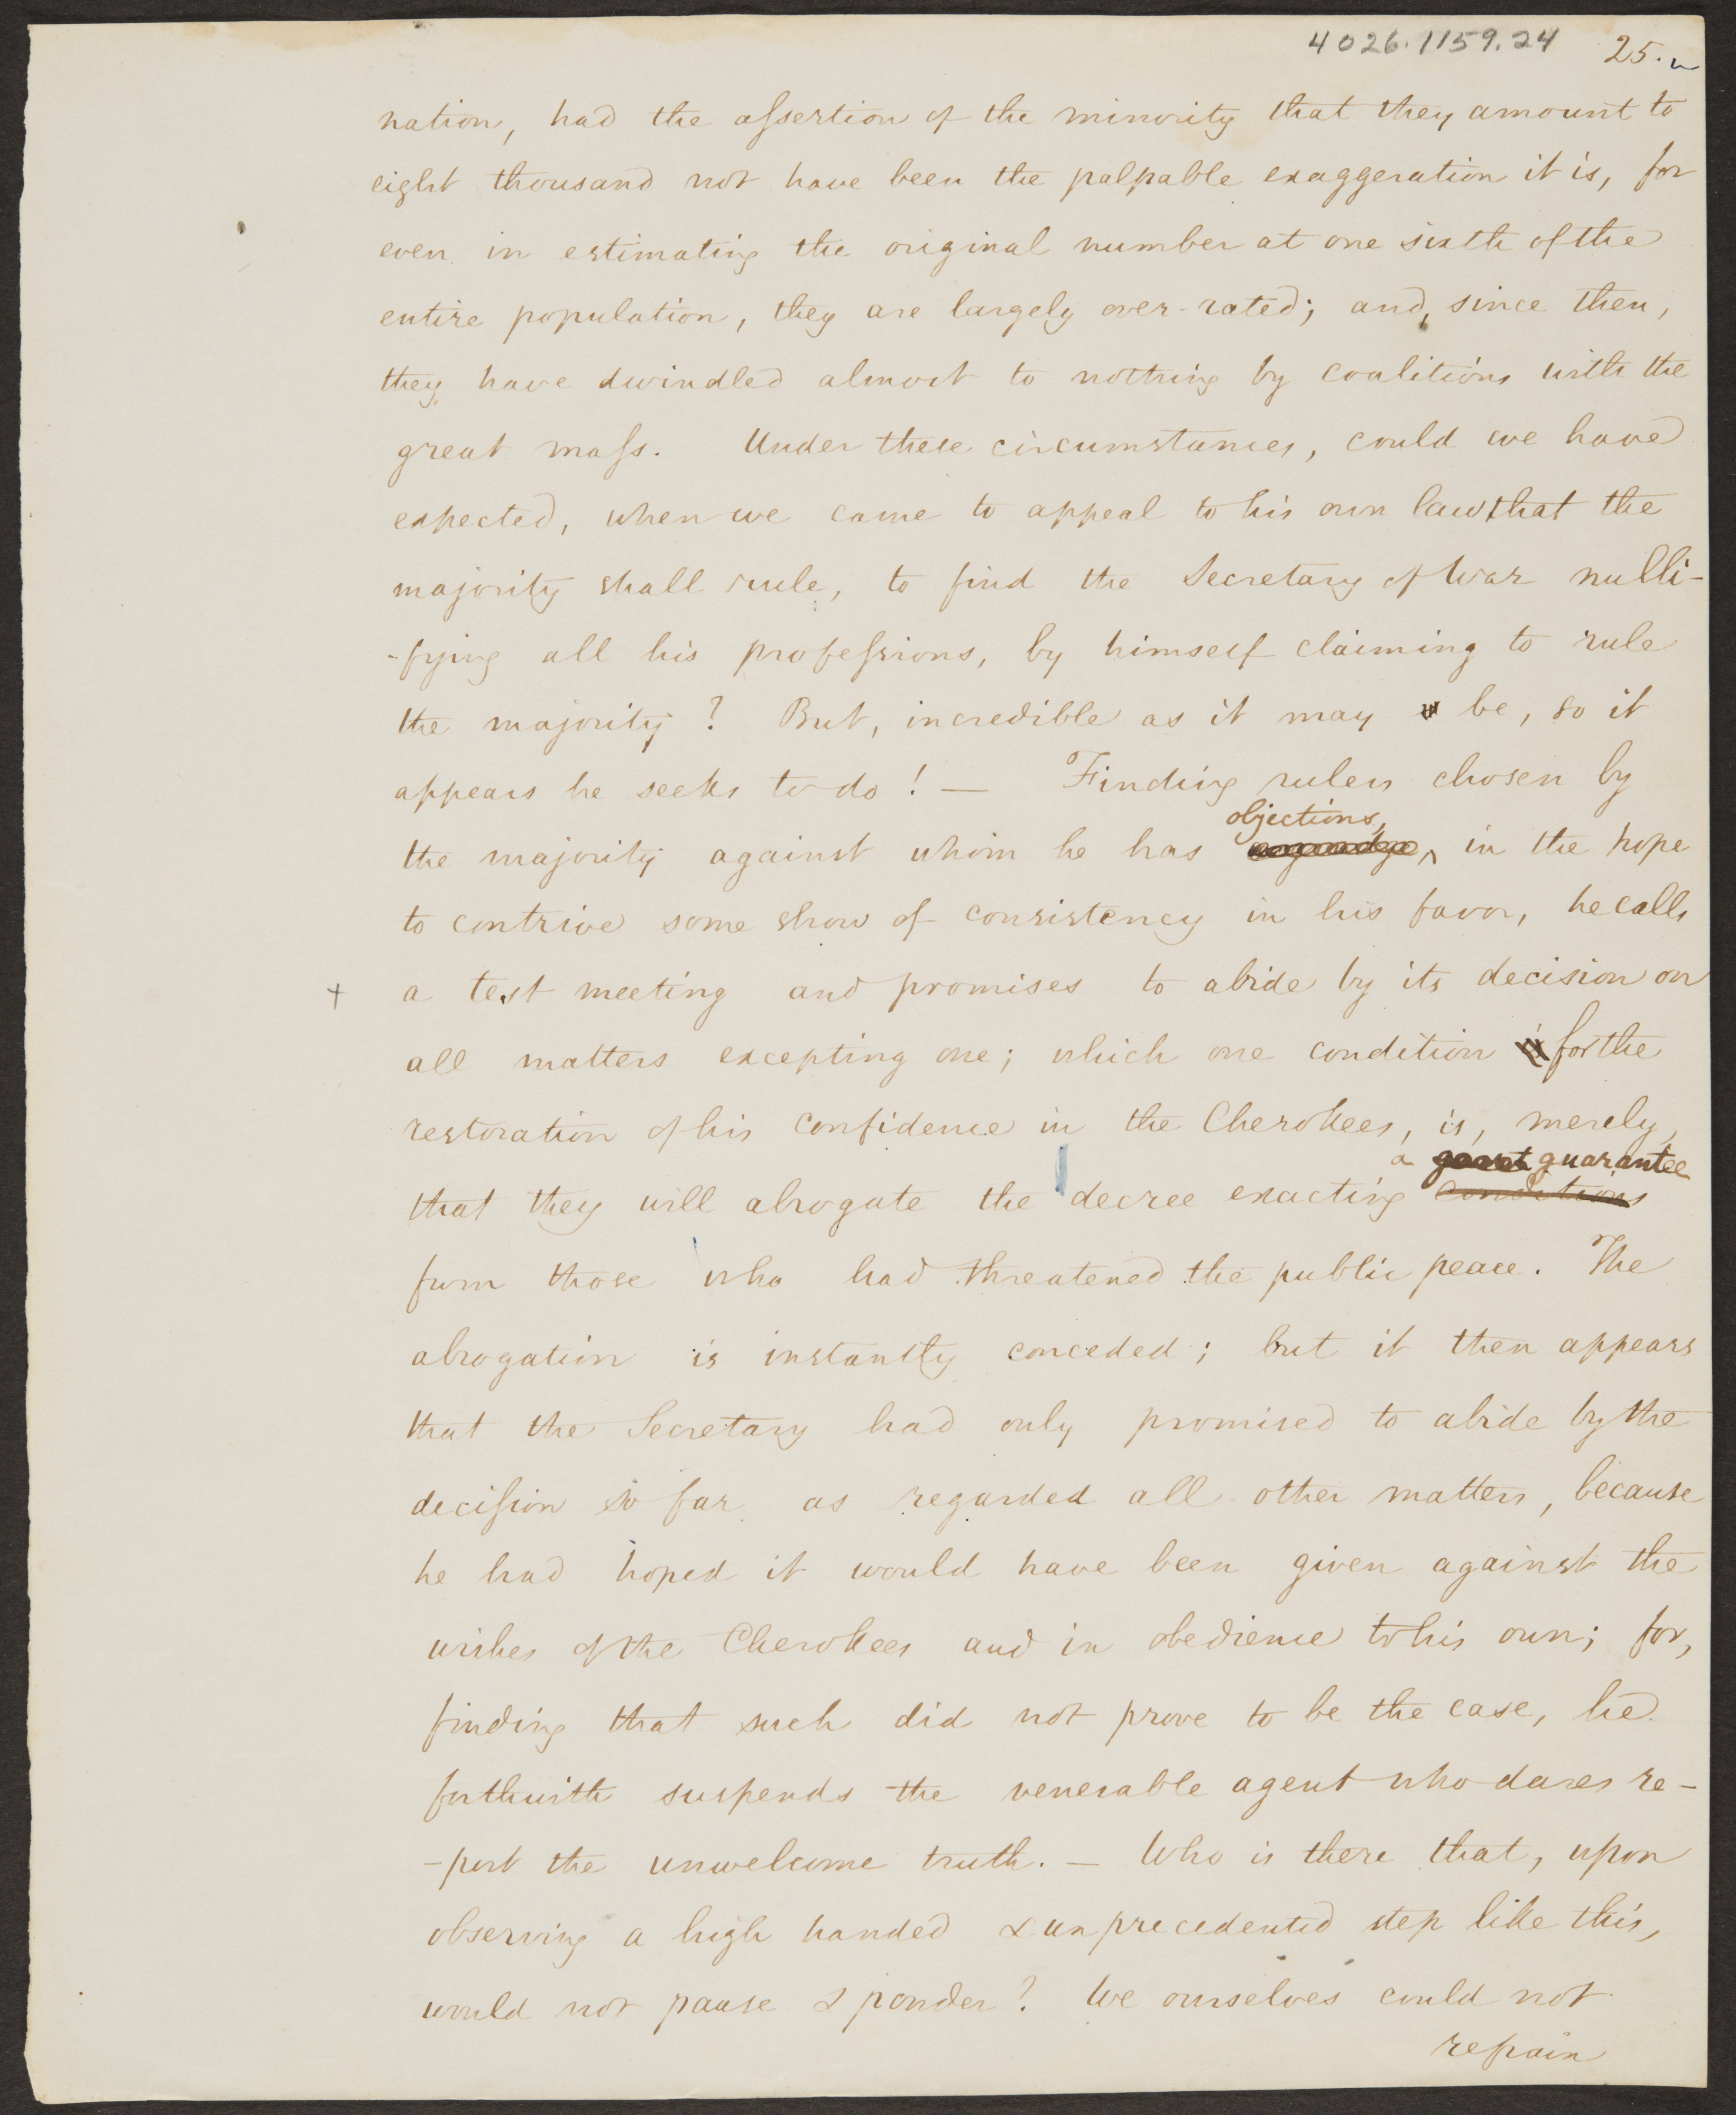 4026.1159.24 25.
nation, had the assertion of the minority that they amount to
eight thousand not have been the palpable exaggeration it is, for
even in estimating the original number at one sixth of the
entire population, they are largely over-rated; and, since then,
they have dwindled almost to nothing by coalitions with the
great mass. Under these circumstances, could we have
expected, when we came to appeal to his own law, that the
majority shall rule, to find the Secretary of War nulli-
-fying all his professions, by himself claiming to rule
the majority? But, incredible as it may be, so it
appears he seeks to do! — Finding rulers chosen by
objections,
the majority against whom he has in the hope
to contrive some show of consistency in his favor, he calls
+ a test meeting and promises to abide by its decision on
all matters excepting one; which one condition for the
restoration of his confidence in the Cherokees, is, merely,
a guarantee
that they will abrogate the decree exacting conditions
from those who had threatened the public peace. The
abrogation is instantly conceded; but it then appears
that the Secretary had only promised to abide by the
decision so far as regarded all other matters, because
he had hoped it would have been given against the
wishes of the Cherokees and in obedience to his own; for,
finding that such did not prove to be the case, he
forthwith suspends the venerable agent who dares re-
-port the unwelcome truth. — Who is there that, upon
observing a high handed & unprecedented step like this,
would not pause & ponder? We ourselves could not
refrain